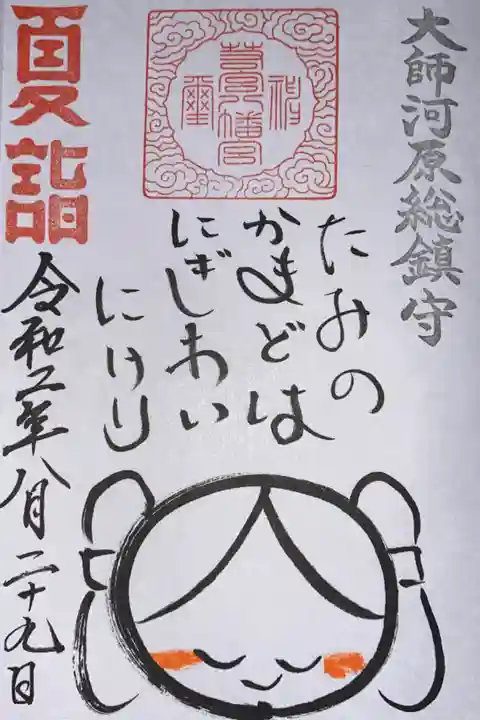 大師河原総鎮守
若宮八幡宮
たみの
かまどは
にぎわい
にけり
夏詣
令和二年八月二十九日